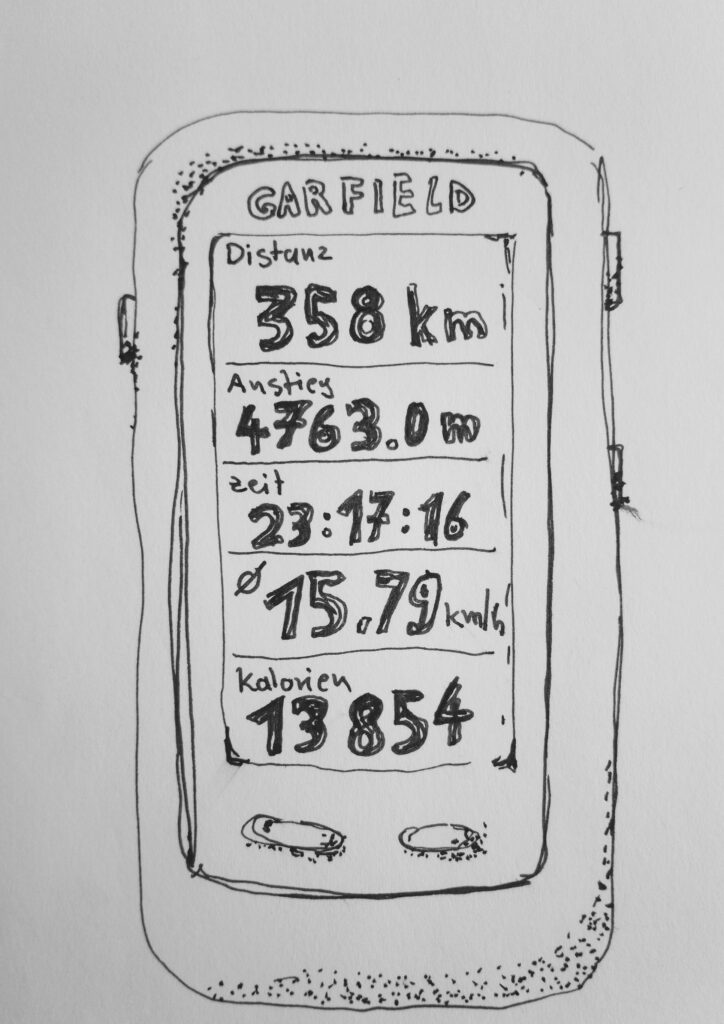 GARFIELD
Distanz
358 km
Anstieg
4763.0 m
Zeit
23:17:16
Ø 15.79 km/h
Kalorien
13 854